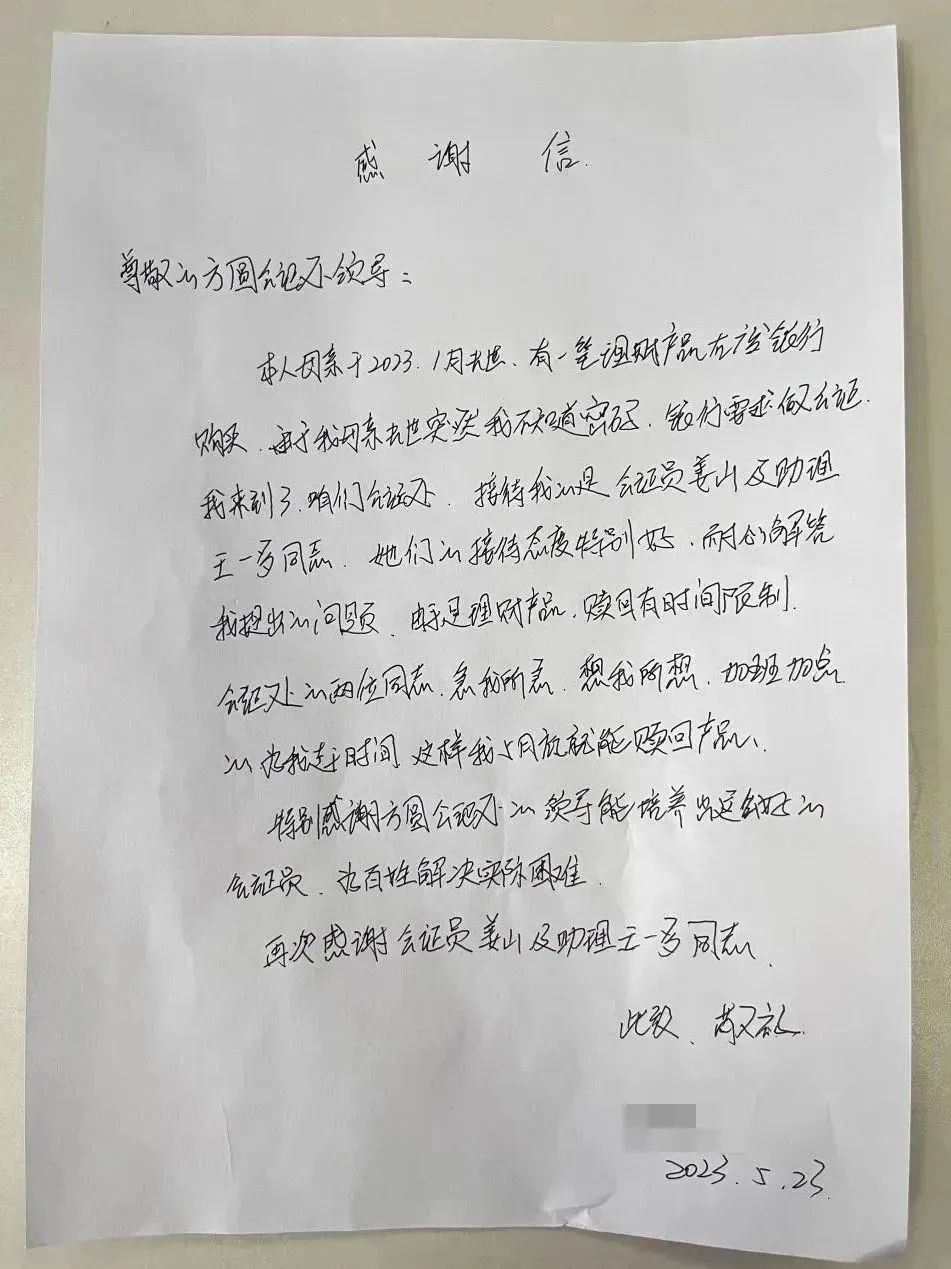 感谢信.
尊敬的方圆公证处领导：
本人母亲于2023.1月去世、有一笔理财产品在该银行
购买、由于我母亲去世突然我不知道密码、银行需求做公证.
我来到了咱们公证处、接待我的是公证员姜山及助理
王一多同志、她们的接待态度特别好、耐心解答
我提出的问题、由于是理财产品,赎回有时间限制.
公证处的两位同志、急我所急、想我所想、加班加点
的为我赶时间、这样我5月放就能赎回产品、
特别感谢方圆公证处的领导能培养出这么好的
公证员、为百姓解决实际困难.
再次感谢公证员姜山及助理王一多同志、
此致、敬礼
2023.5.23.